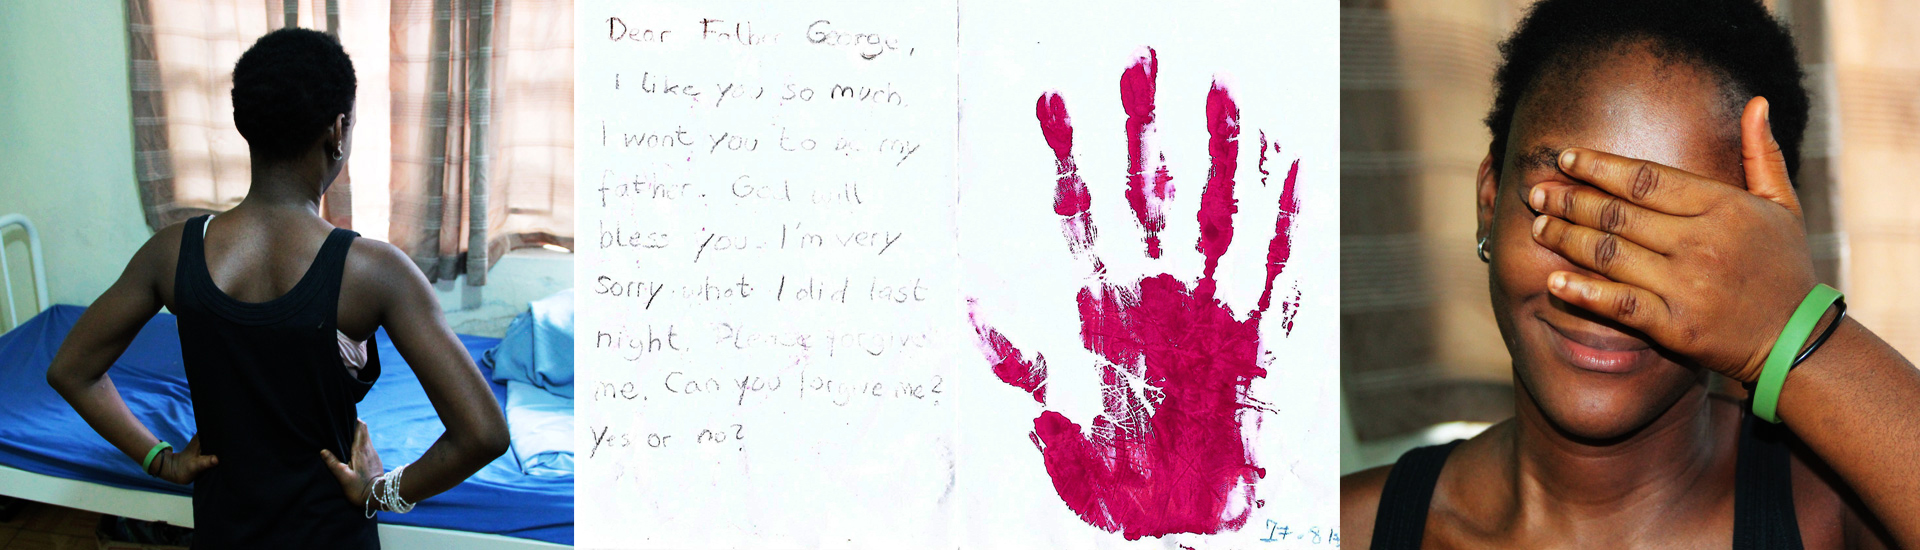 Dear Father George,
I like you so much.
I want you to be my
father. God will
bless you. I'm very
sorry what I did last
night. Please forgive
me. Can you forgive me?
Yes or no?